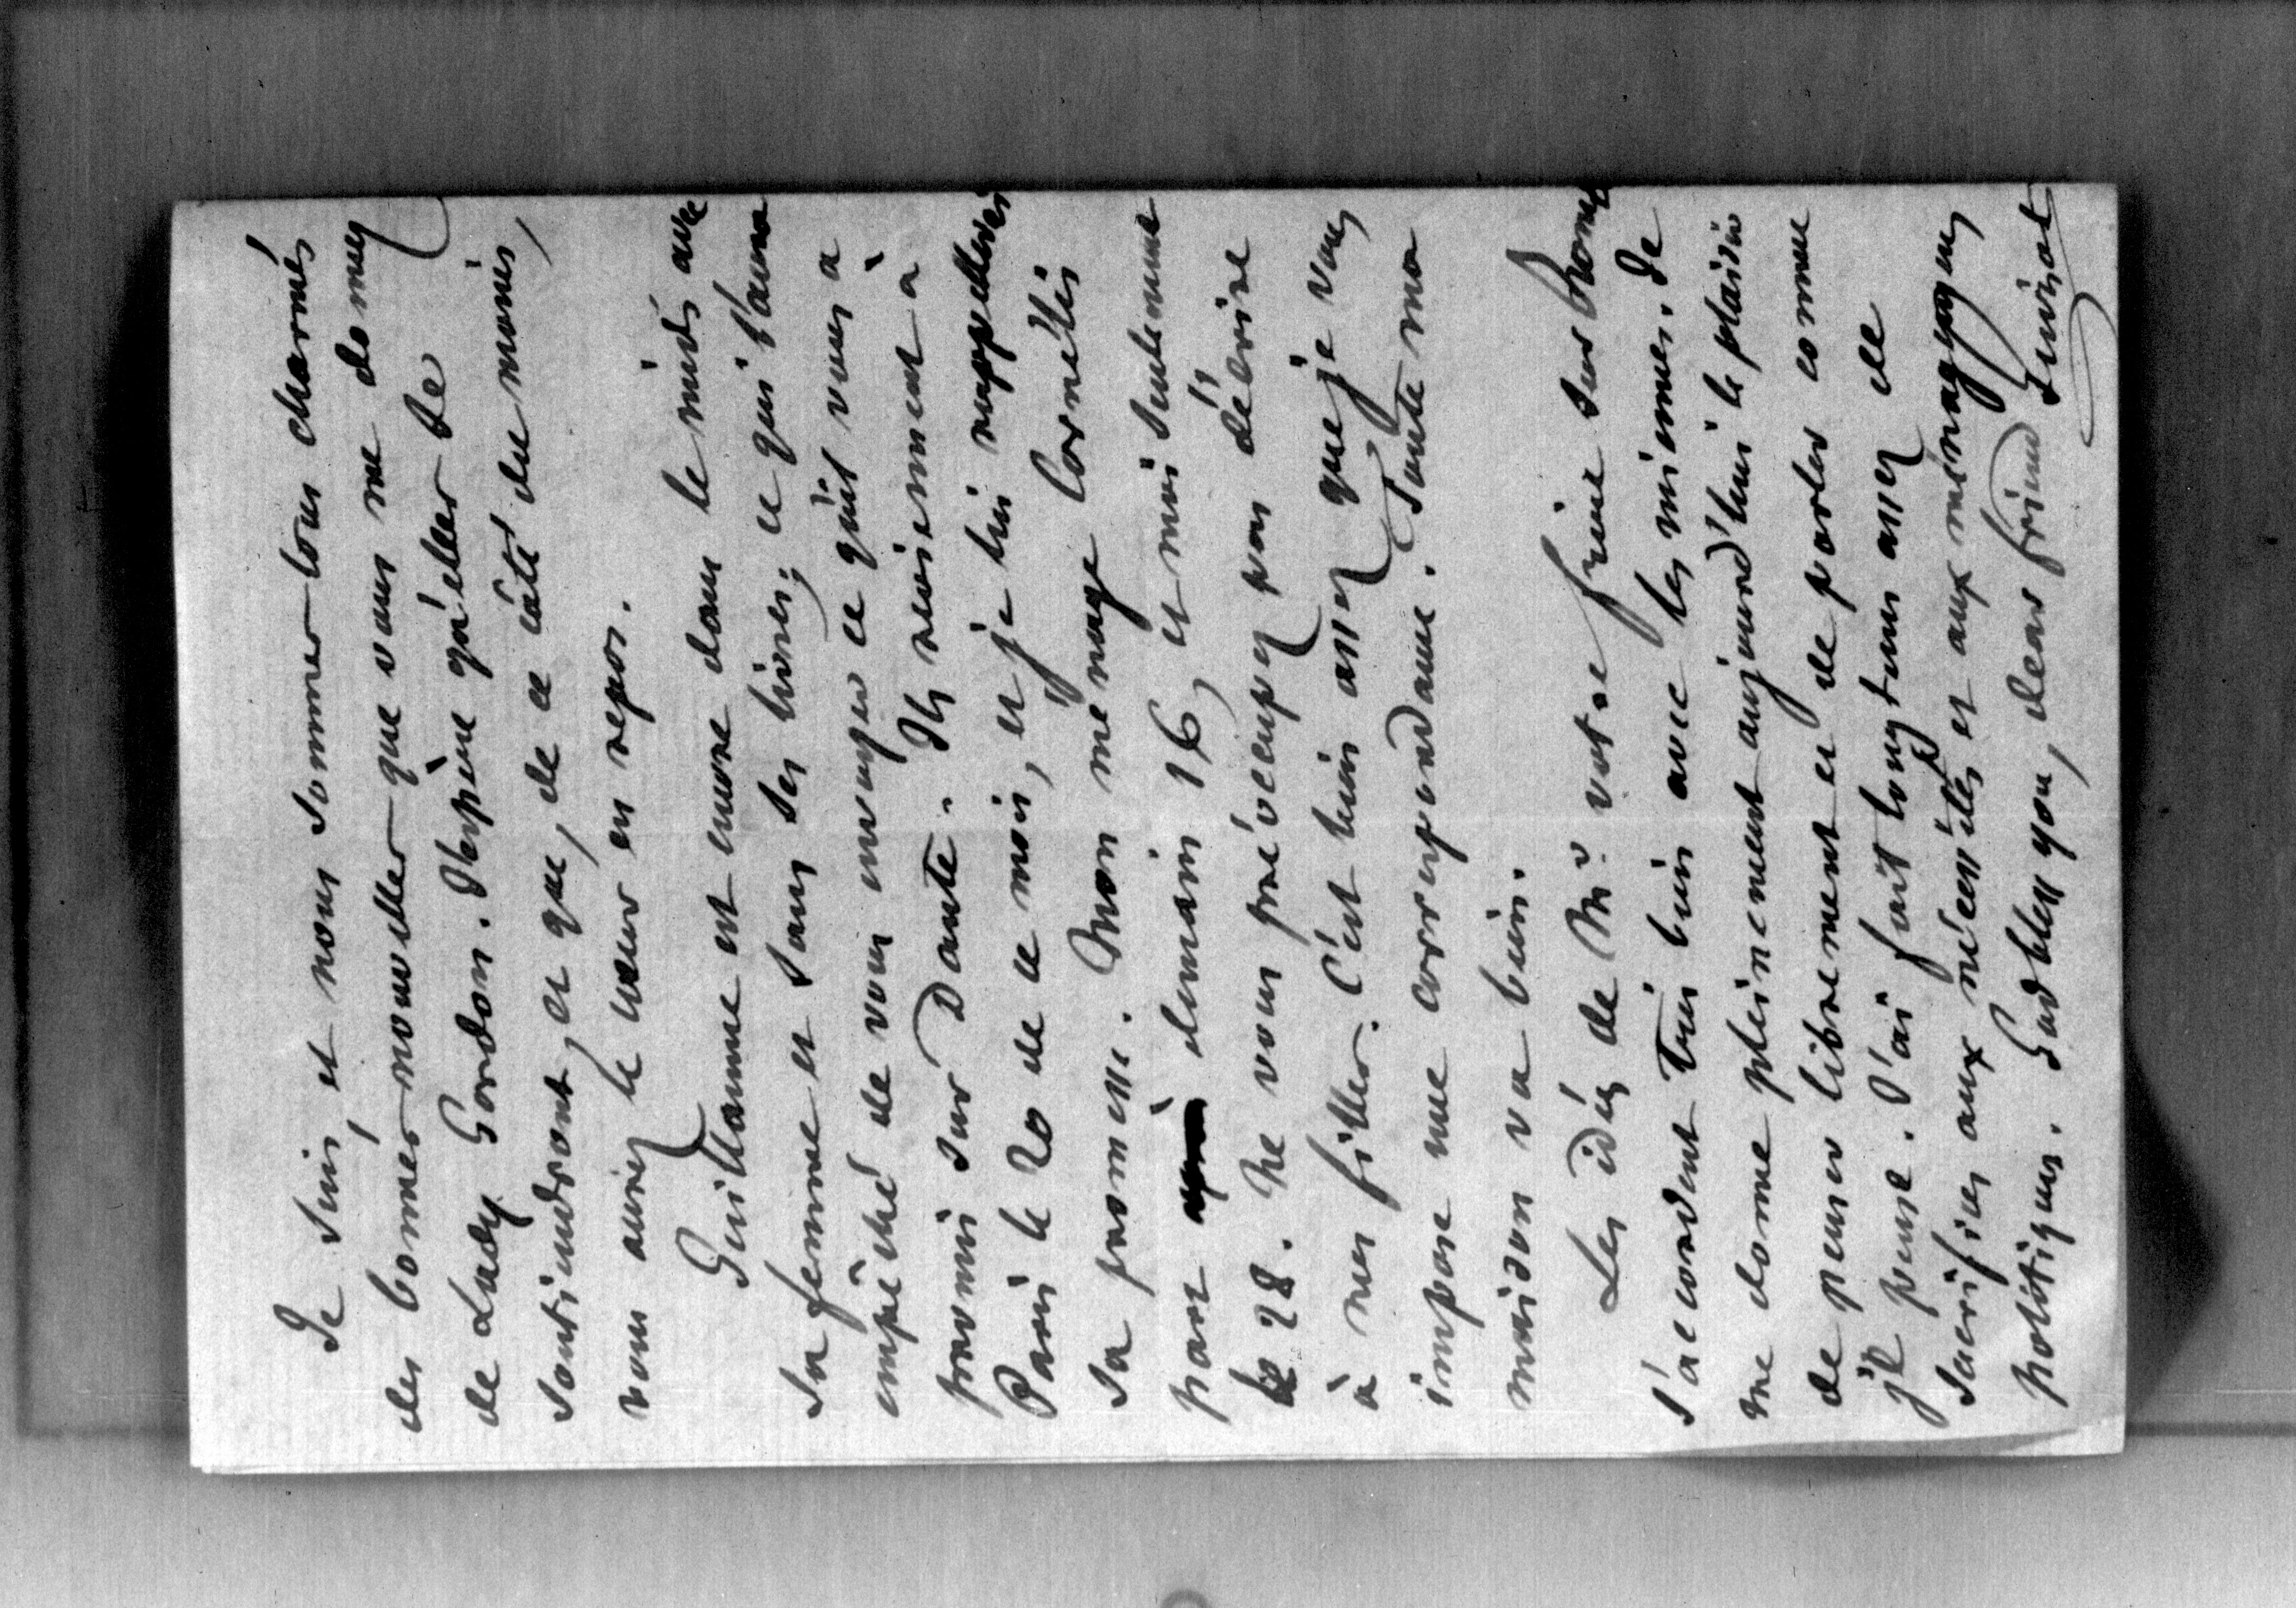 Je suis, et nous sommes tous charmés
des bonnes nouvelles que vous me donnez
de Lady Gordon. J'espère qu'elles se
soutiendront, et que, de ce côté du moins,
vous aurez le cœur en repos.
Guillaume est encore dans le midi avec
sa femme et sans ses livres; ce qui l'aura
empêché de vous envoyer ce qu'il vous a
promis sur Dante. Ils reviennent à
Paris le 20 de ce mois, et je lui rappellerai
sa promesse. Mon ménage Cornélis
part demain 16, et moi seulement
le 28. Ne vous préoccupez pas d'écrire
à mes filles. C'est bien assez que je vous
impose une correspondance. Toute ma
maison va bien.
Les idées de Mr votre frère sur Rome
s'accordent très bien avec les miennes. Je
me donne pleinement aujourd'hui le plaisir
de penser librement et de parler comme
je pense. J'ai fait longtems assez de
sacrifices aux nécessités et aux ménagemens
politiques. God bless you, dear friend Guizot